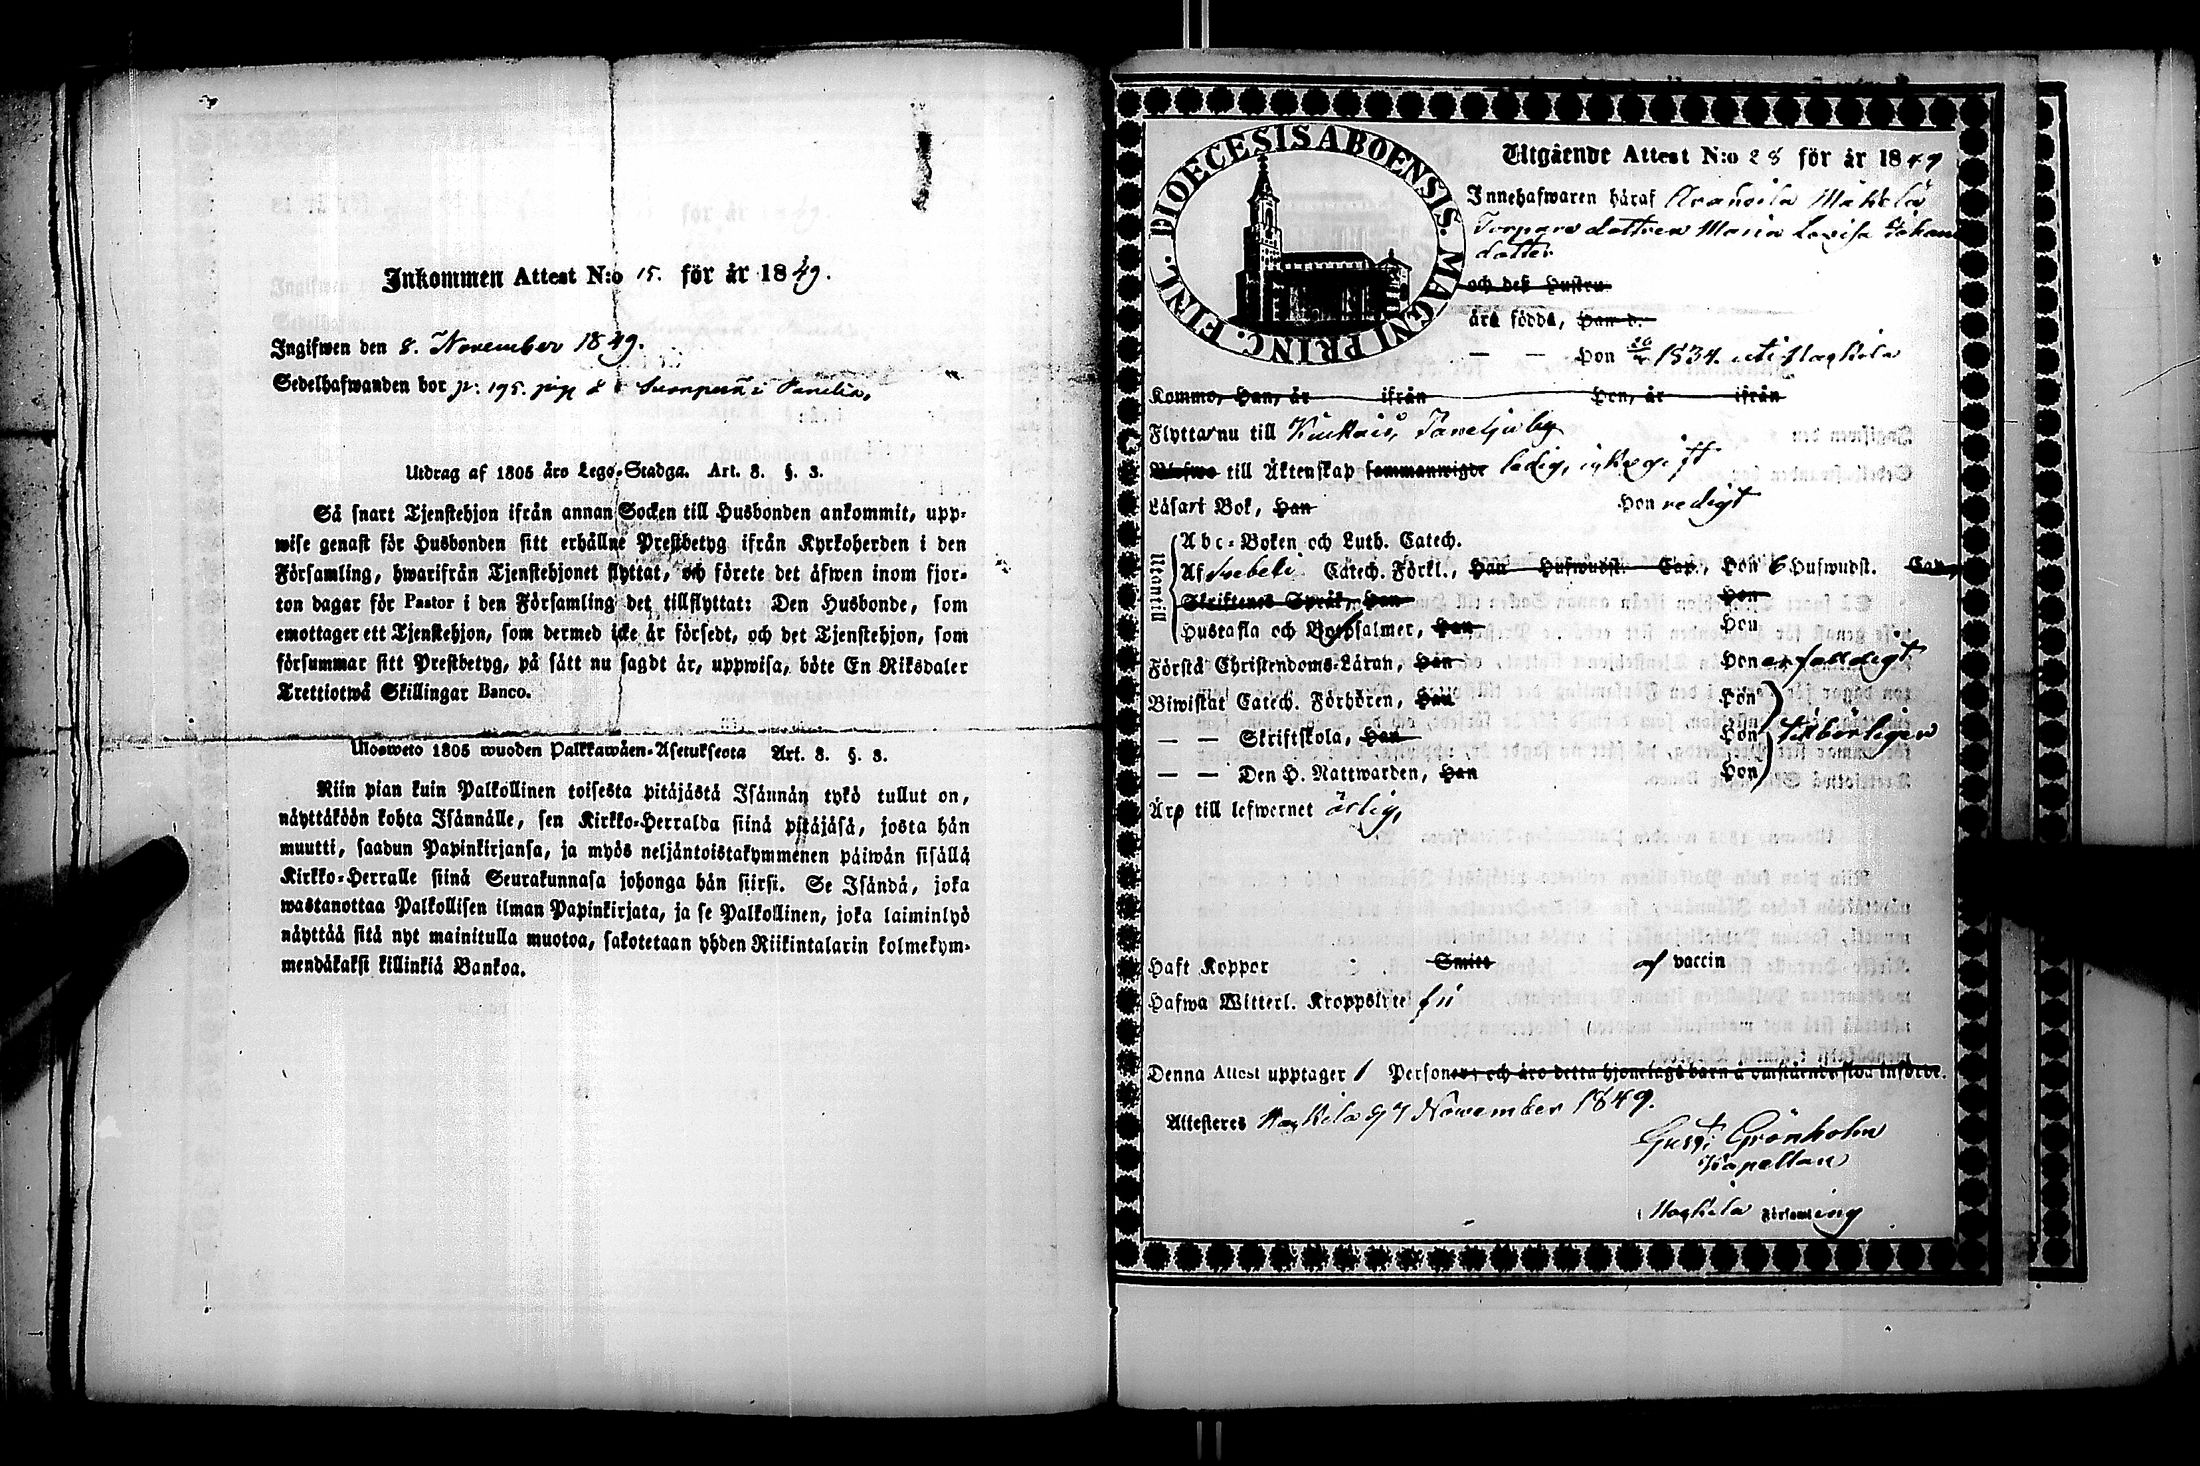 Inkommen Attest N:o 15. för år 1849.
Ingifwen den 8. November 1849.
Sedelhafwanden bor p: 195. pig i Panelia,
Utdrag af 1805 års Lego-Stadga. Art. 3. §. 3.
Så snart Tjenstehjon ifrån annan Socken till Husbonden ankommit, upp-
wise genast för Husbonden sitt erhållne Prestbetyg ifrån Kyrkoherden i den
Församling, hwarifrån Tjenstehjonet flyttat, och förete det äfwen inom fjor-
ton dagar för Pastor i den Församling det tillflyttat: Den Husbonde, som
emottager ett Tjenstehjon, som dermed icke är försedt, och det Tjenstehjon, som
försummar sitt Prestbetyg, på sätt nu sagdt är, uppwisa, böte En Riksdaler
Trettiotwå Skillingar Banco.
Ulosweto 1805 wuoden Palkkawäen-Asetuksesta Art. 3. §. 3.
Niin pian kuin Palkollinen toisesta pitäjästä Isännän tykö tullut on,
näyttäköön kohta Isännälle, sen Kirkko-Herralda siinä pitäjäsä, josta hän
muutti, saadun Papinkirjansa, ja myös neljäntoistakymmenen päiwän sisällä
Kirkko-Herralle siinä Seurakunnasa johonga hän siirsi. Se Isändä, joka
wastanottaa Palkollisen ilman Papinkirjata, ja se Palkollinen, joka laiminlyö
näyttää sitä nyt mainitulla muotoa, sakotetaan yhden Riikintalarin kolmekym-
mendäkaksi killinkiä Bankoa.
DIOECESIS ABOENSIS. MAGNI PRINC. FINL.
Utgående Attest N:o 28 för år 1849
Innehafwaren häraf Aranvila Mäkelä
Torpare dottren Maria Lovisa Johans
dotter
och deß Hustru
äro födda, Han d.
— — Hon 1834. uti Honkila
Komme, Han, år ifrån Hon, år ifrån
Flyttar nu till Kiukais, Paneljaby
Blefwe till Äktenskap sammanwigde ledig, ej Kogift
Läsart Bok, Han Hon redigt
Utantill
Abc-Boken och Luth. Catech.
Af Svebeli Catech. Förkl., Han Hufwudst. Cap., Hon 6 Hufwudst. Cap.
Skriftenes Språk, Han Hon
Hustafla och Botpsalmer, Han Hon
Förstå Christendoms-Läran, Han Hon enfaldigt
Biwistat Catech. Förhören, Han Hon
— — Skriftskola, Han Hon tillbörligen
— — Den H. Nattwarden, Han Hon
Äro till lefwernet ärlig,
Haft Koppor Smitt af vaccin
Hafwa Witterl. Kroppslyte
Denna Attest upptager 1 Personer och äro detta hjonelags barn å omstående sida införde.
Attesteres Honkila d. 7 November 1849.
Gust: Grönholm
Kapellan
i Honkila Församling